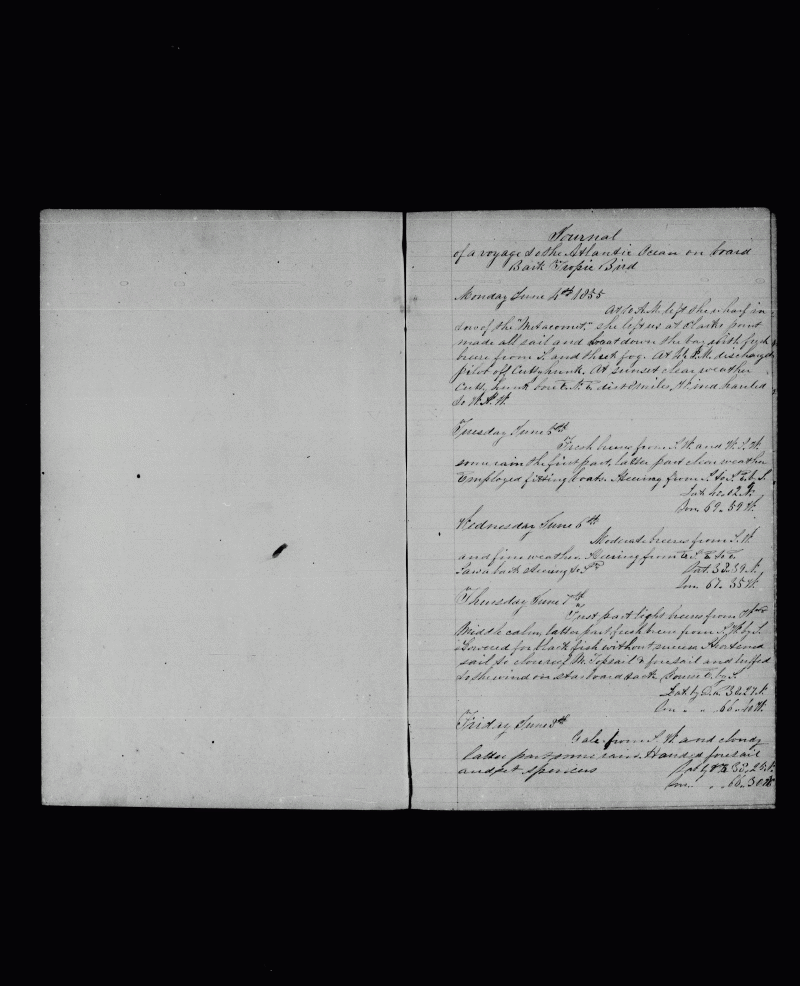 Journal
of a voyage to the Atlantic Ocean on board
Bark Tropic Bird
Monday June 4th 1855
At 10 A.M. left the wharf in
tow of the "Metacomet," she left us at Clarks point
made all sail and beat down the bay with fresh
breeze from S. and thick fog. At P.M. discharged
pilot off Cuttyhunk. At sunset clear weather
Cuttyhunk bore E.N.E. dist miles, Wind hauled
to W.
Tuesday June 5th
Fresh breeze from S.W. and W.S.W.
some rain the first part, latter part clear weather
Employed fitting boats. Steering from S. to S.E. by S.
Lat. N.
Lon. 69..59 W.
Wednesday June 6th
Moderate breezes from S.W.
and fine weather. Steering from to E.
Saw a bark steering to Sd
Lat. 38..39 N.
Lon. 67..35 W.
Thursday June 7th
First part light breeze from
Middle calm, latter part fresh breeze from S.W. by S.
Lowered for black fish without success Shortened
sail to close reef M. Topsail & foresail and luffed
to the wind on starboard tack
Lat. by D.R. 38..27 N.
Lon. " " 66..40 W.
Friday June 8th
Gale from S.W. and cloudy
latter part some rain. Handed foresail
and set spencers
Lat by 38.. N.
Lon. " " 66..30 W.